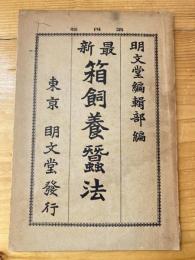 版四第
明文堂編輯部編
最新
箱飼養蠶法
東京 明文堂發行